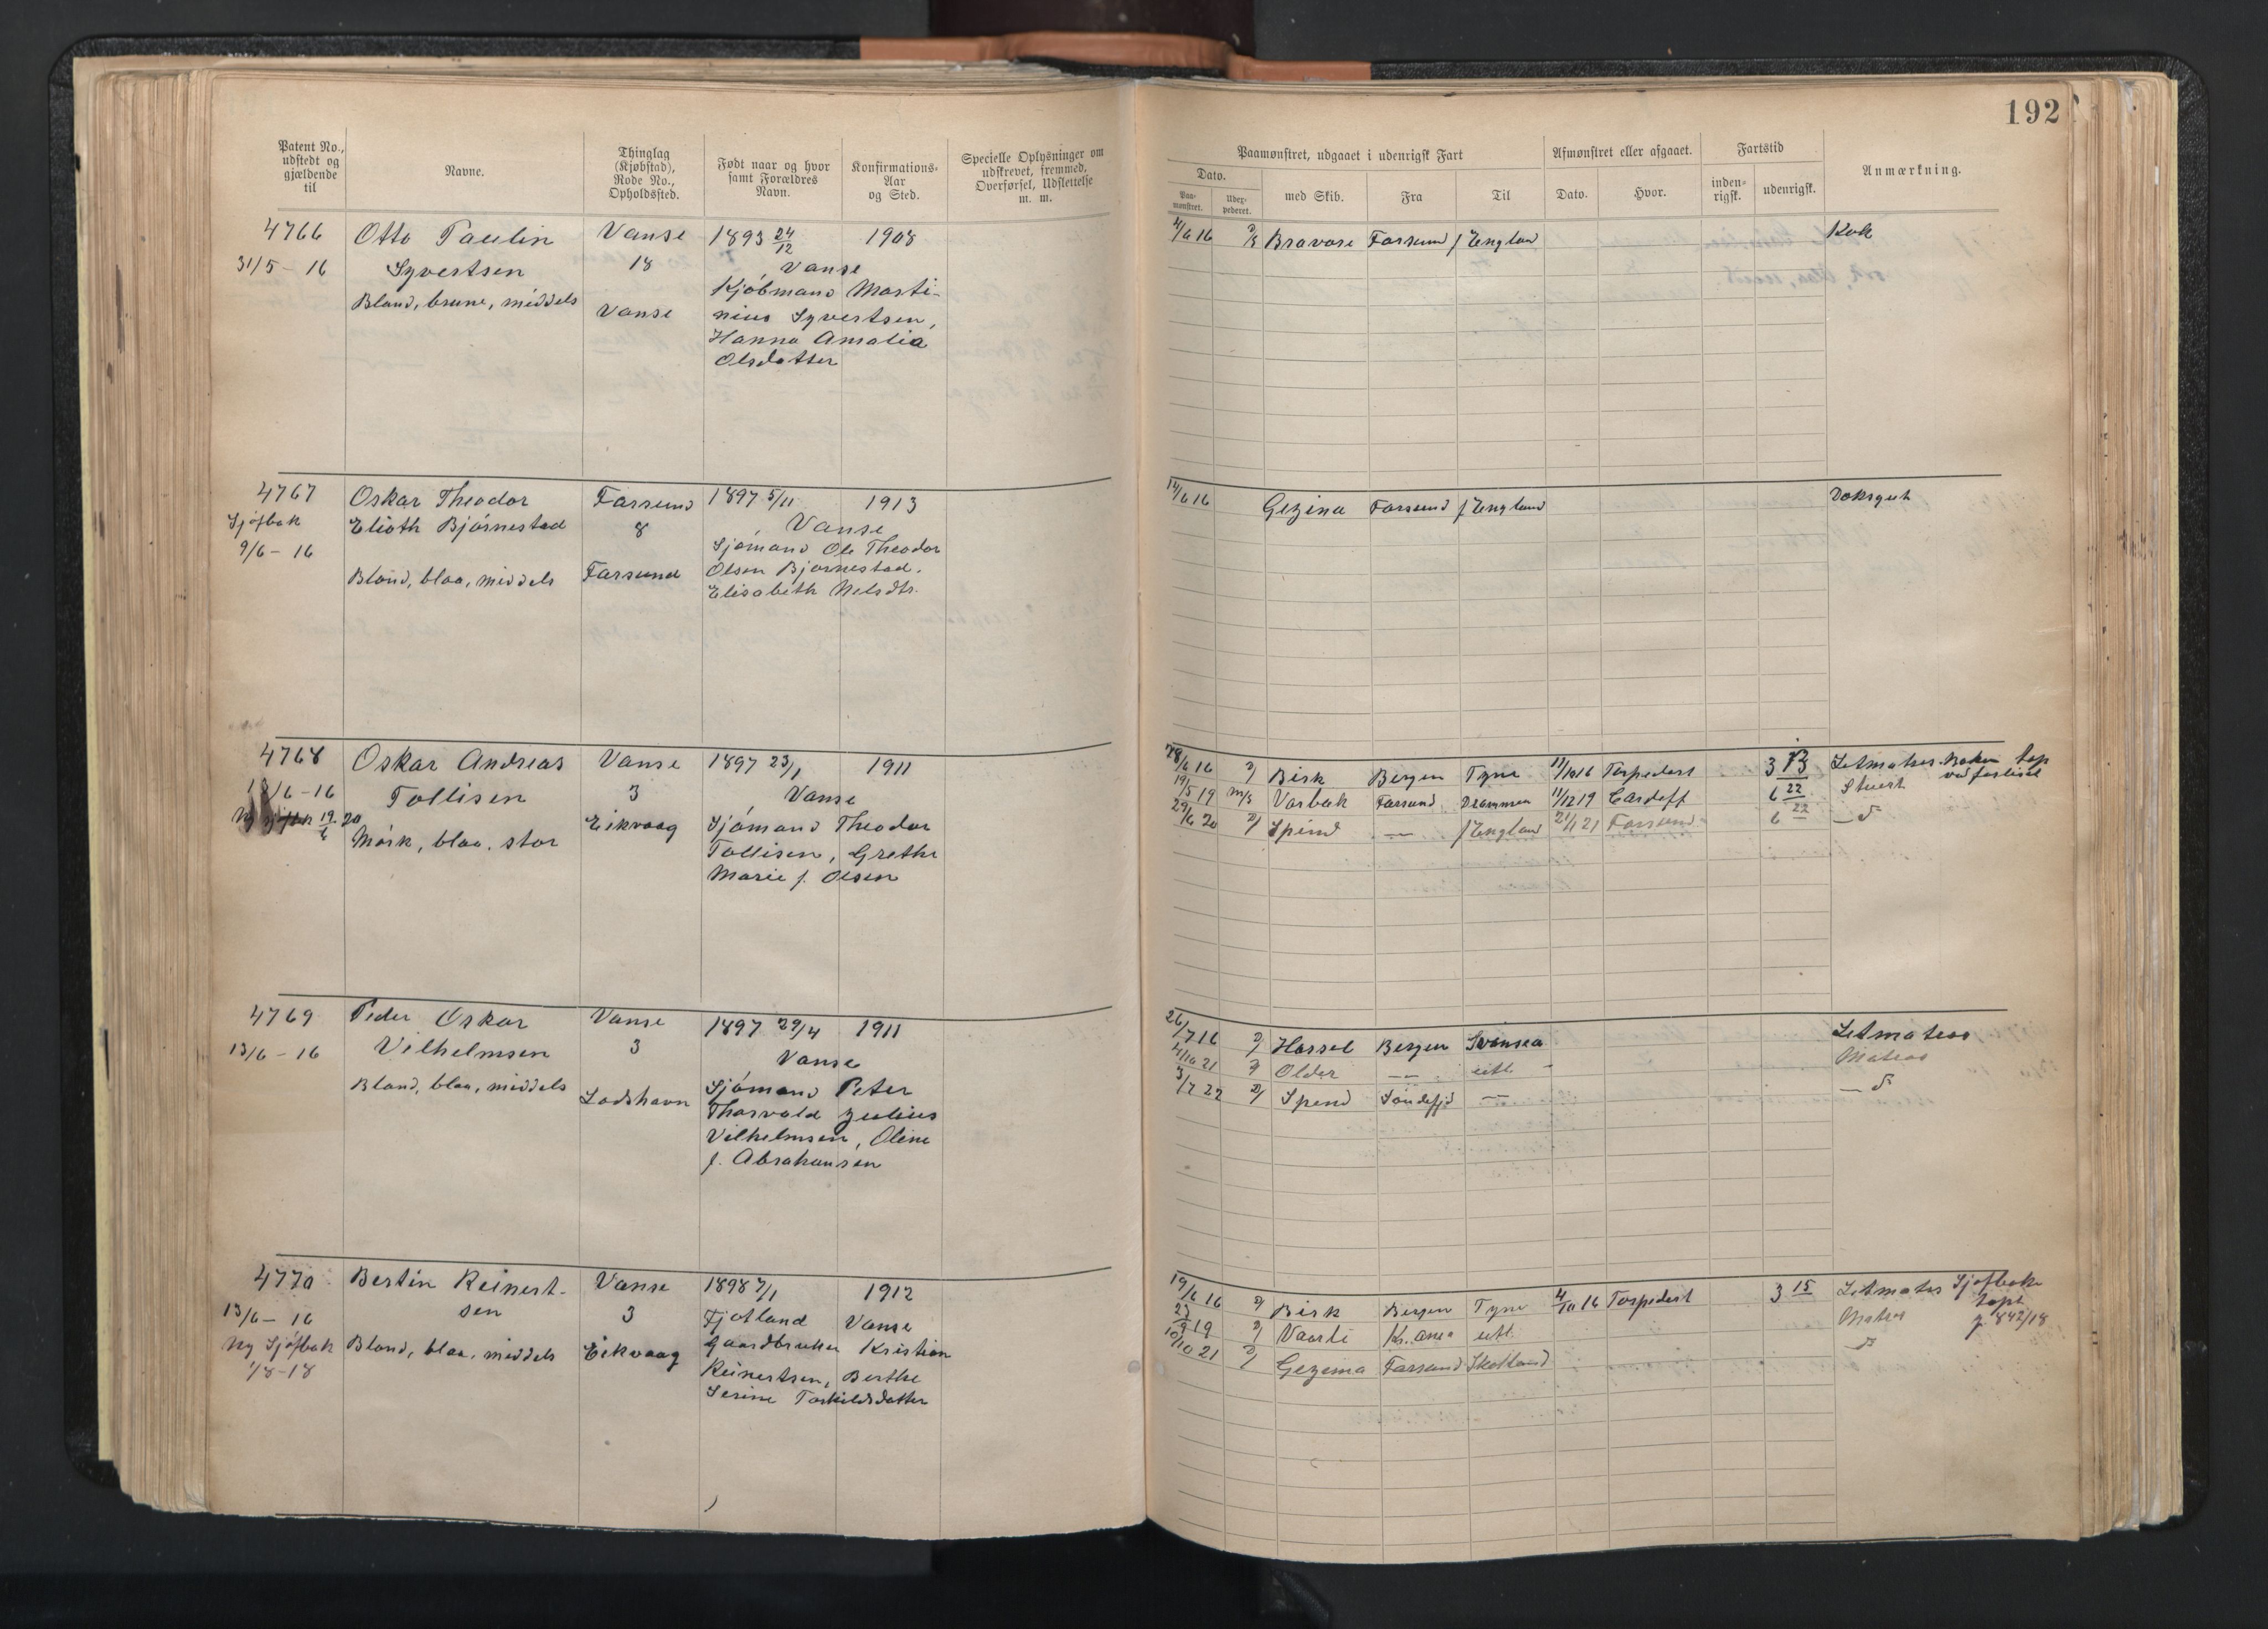 192
Patent No., udstedt og gjældende til
Navne.
Thinglag (Kjøbstad), Rode No., Opholdssted.
Født naar og hvor samt Forældres Navn.
Konfirmations-Aar og Sted.
Specielle Oplysninger om udskrevet, fremmed, Overførsel, Udslettelse m. m.
Paamønstret, udgaaet i udenrigsk Fart
Dato.
Paa-mønstret.
Udex-pederet.
med Skib.
Fra
Til
Afmønstret eller afgaaet.
Dato.
Hvor.
Fartstid
inden-rigsk.
udenrigsk.
Anmærkning.
4766
31/5 - 16
Otto Paulin
Syvertsen
Blond, brune, middels
Vanse
18
Vanse
1893 24/12
1908
Vanse
Kjøbmand Marti-
nius Syvertsen,
Hanna Amalia
Olsdatter
/6 16 Bravore Farsund f England Kok
4767
Sjøfbok
9/6 - 16
Oskar Theodor
Elioth Bjørnestad
Blond, blaa, middels
Farsund
8
Farsund
1897 5/11
1913
Vanse
Sjømand Ole Theodor
Olsen Bjørnestad,
Elisabeth Nelsdtr.
14/6 16 Gezina Farsund f England Doksgut
4768
13/6 - 16
Ny sjøfbok 19/6 20
Oskar Andreas
Tollisen
Mørk, blaa, stor
Vanse
3
Eikvaag
1897 23/1
1911
Vanse
Sjømand Theodor
Tollisen, Grethe
Marie f. Olsen
28/6 16 Birk Bergen Tyne 11/10 16 Torpedert 3 13 Letmatros. Boken tap ved forliset
19/5 19 m/s Varbak Farsund Drammen 11/12 19 Cardiff 6 22 Stuert
29/6 20 Spind — f England 21/1 21 Farsund 6 22 — d
4769
13/6 - 16
Peder Oskar
Vilhelmsen
Blond, blaa, middels
Vanse
3
Lodshavn
1897 29/4
1911
Vanse
Sjømand Peter
Thorvald Julius
Vilhelmsen, Oline
f. Abrahamsen
26/7 16 Hassel Bergen Svansea Letmatros
4/10 21 Older — utl Matros
3/7 22 Spind Sandefjd — — d
4770
13/6 - 16
Ny Sjøfbok
1/8 - 18
Bertin Reinert-
sen
Blond, blaa, middels
Vanse
3
Eikvaag
1898 7/1
1912
Fjotland
Vanse
Gaardbruker Kristian
Reinertsen, Berthe
Serine Torkildsdatter
19/6 16 Birk Bergen Tyne 4/10 16 Torpedert 3 15 Letmatros Sjøfbok tapt
23/9 19 Vaarli Kr.ania utl. Matros j. 842/18
10/10 21 Gezina Farsund Skotland — d